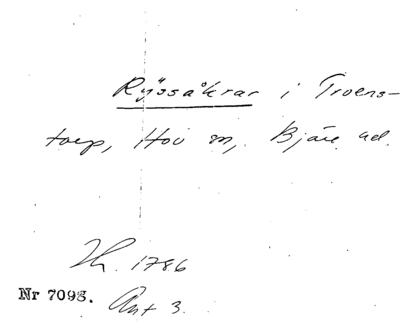 Ryssåkrar i Troens-
torp, Hov sn, Bjäre hd.
Lh. 1786
Nr 7093. Akt 3.